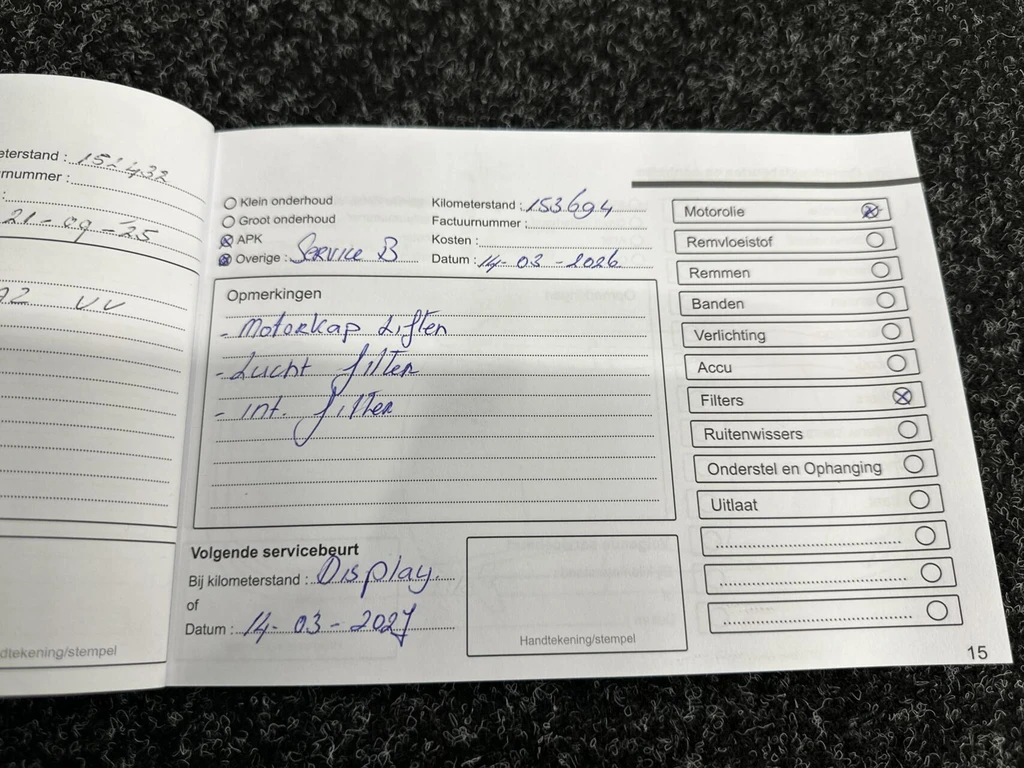 eterstand : 152432
rnummer :
:
21-09-25
92 VV
dtekening/stempel
Klein onderhoud
Groot onderhoud
APK
Overige : Service B
Kilometerstand : 153694
Factuurnummer :
Kosten :
Datum : 14-03-2026
Opmerkingen
- Motorkap Liften
- Lucht filter
- int. filter
Volgende servicebeurt
Bij kilometerstand : Display
of
Datum : 14-03-2027
Handtekening/stempel
Motorolie
Remvloeistof
Remmen
Banden
Verlichting
Accu
Filters
Ruitenwissers
Onderstel en Ophanging
Uitlaat
15